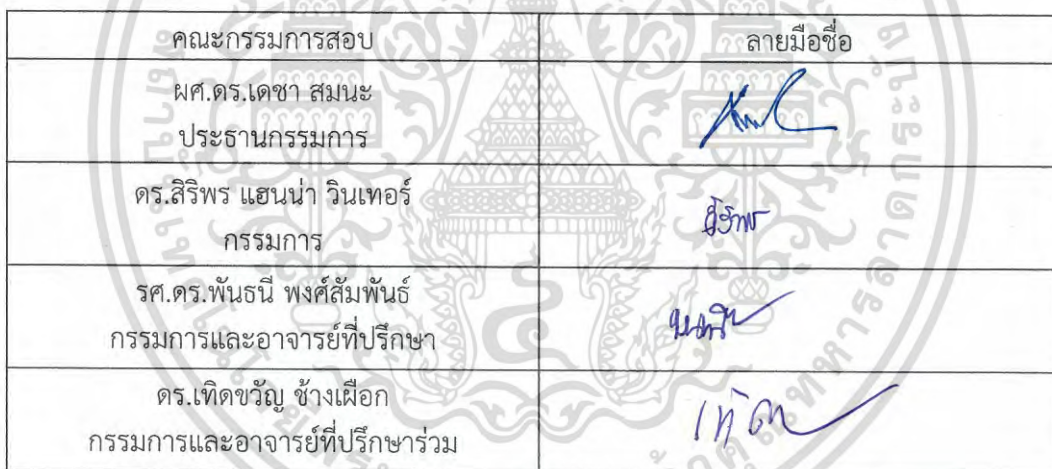 คณะกรรมการสอบ ลายมือชื่อ
ผศ.ดร.เดชา สมนะ
ประธานกรรมการ
ดร.สิริพร แฮนน่า วินเทอร์
กรรมการ
สิริพร
รศ.ดร.พันธนี พงศ์สัมพันธ์
กรรมการและอาจารย์ที่ปรึกษา
ดร.เทิดขวัญ ช้างเผือก
กรรมการและอาจารย์ที่ปรึกษาร่วม